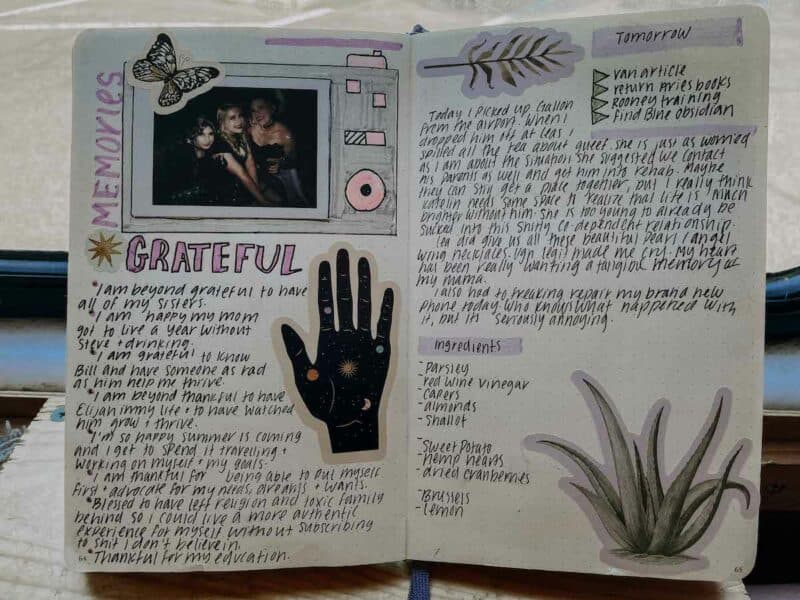 MEMORIES
GRATEFUL
*I am beyond grateful to have
all of my sisters.
*I am happy my mom
got to live a year without
Steve + drinking.
*I am grateful to know
Bill and have someone as rad
as him help me thrive.
*I am beyond thankful to have
Elijah in my life + to have watched
him grow + thrive.
*I'm so happy summer is coming
and I get to spend it travelling +
working on myself + my goals.
*I am thankful for being able to put myself
first + advocate for my needs, dreams + wants.
*Blessed to have left religion and toxic family
behind so I could live a more authentic
experience for myself without subscribing
to shit I don't believe in.
*Thankful for my education.
64
Tomorrow
van article
return Aries books
Rooney training
find Bine obsidian
Today I picked up
from the airport. When I
dropped him off at Leas I
spilled all the tea about
She is just as worried
as I am about the situation. She suggested we contact
his parents as well and get him into rehab. Maybe
they can still get a place together, but I really think
Katelin needs some space to realize that life is much
brighter without him. She is too young to already be
sucked into this shitty co-dependent relationship.
Lea did give us all these beautiful pearl / angel
wing necklaces. Ugh legit made me cry. My heart
has been really wanting a tangible memory of
my mama.
I also had to freaking repair my brand new
phone today. Who knows what happened with
it, but it's seriously annoying.
Ingredients
- Parsley
- red wine vinegar
- capers
- almonds
- shallot
- Sweet Potato
- hemp hearts
- dried cranberries
- Brussels
- lemon
65